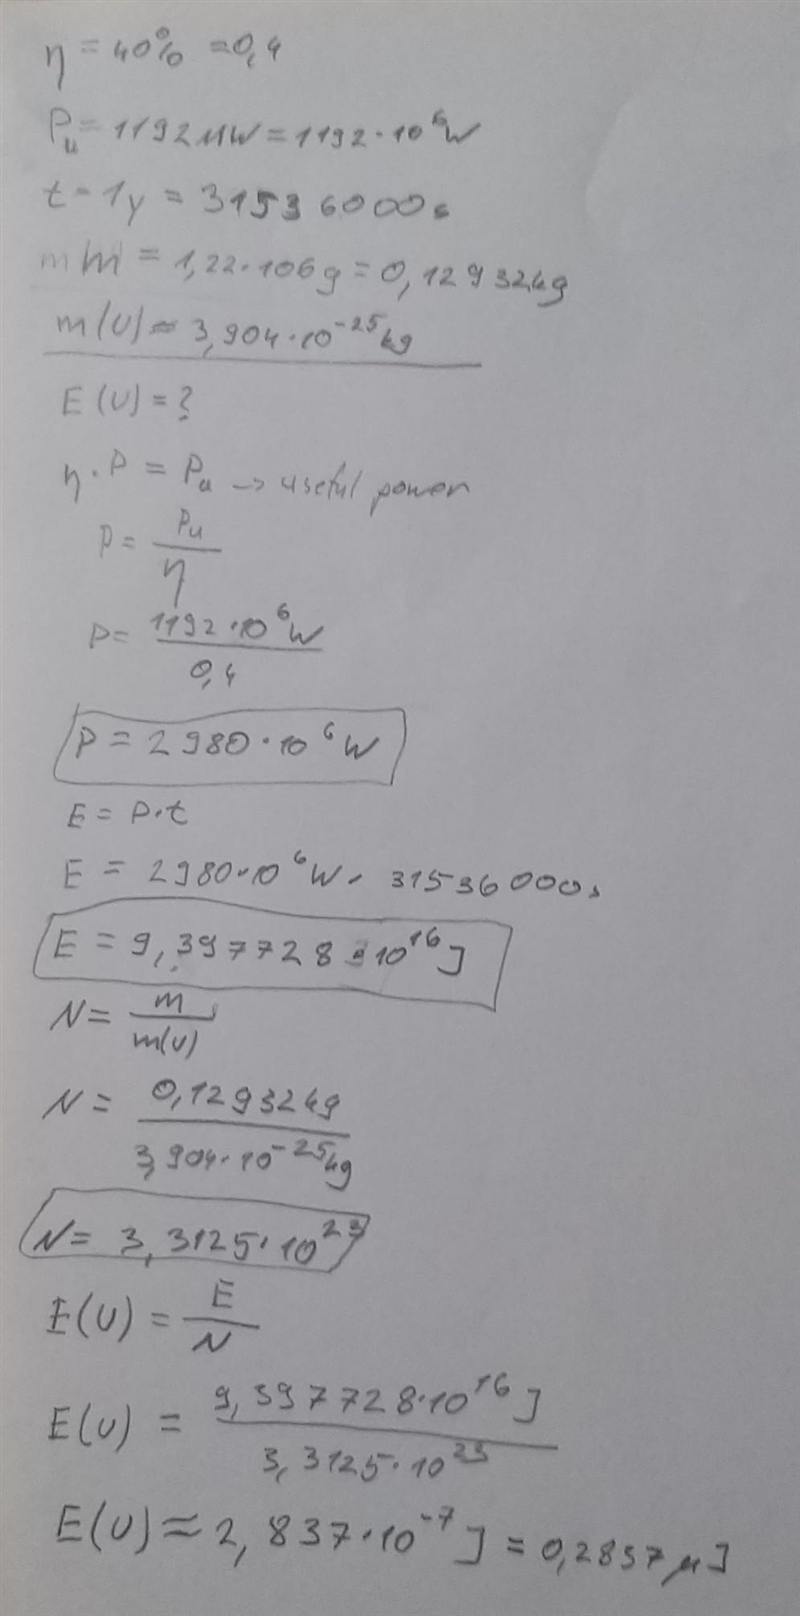 η = 40% = 0,4
Pu = 1192 MW = 1192 · 10⁶ W
t = 1y = 31536000 s
m = 1,22 · 106g = 0,12932kg
m(U) ≈ 3,904 · 10⁻²⁵ kg
E(U) = ?
η · P = Pu → useful power
P = Pu / η
P = 1192 · 10⁶ W / 0,4
P = 2980 · 10⁶ W
E = P · t
E = 2980 · 10⁶ W · 31536000 s
E = 9,397728 · 10¹⁶ J
N = m / m(U)
N = 0,12932kg / 3,904 · 10⁻²⁵ kg
N = 3,3125 · 10²³
E(U) = E / N
E(U) = 9,397728 · 10¹⁶ J / 3,3125 · 10²³
E(U) ≈ 2,837 · 10⁻⁷ J = 0,2837 μJ